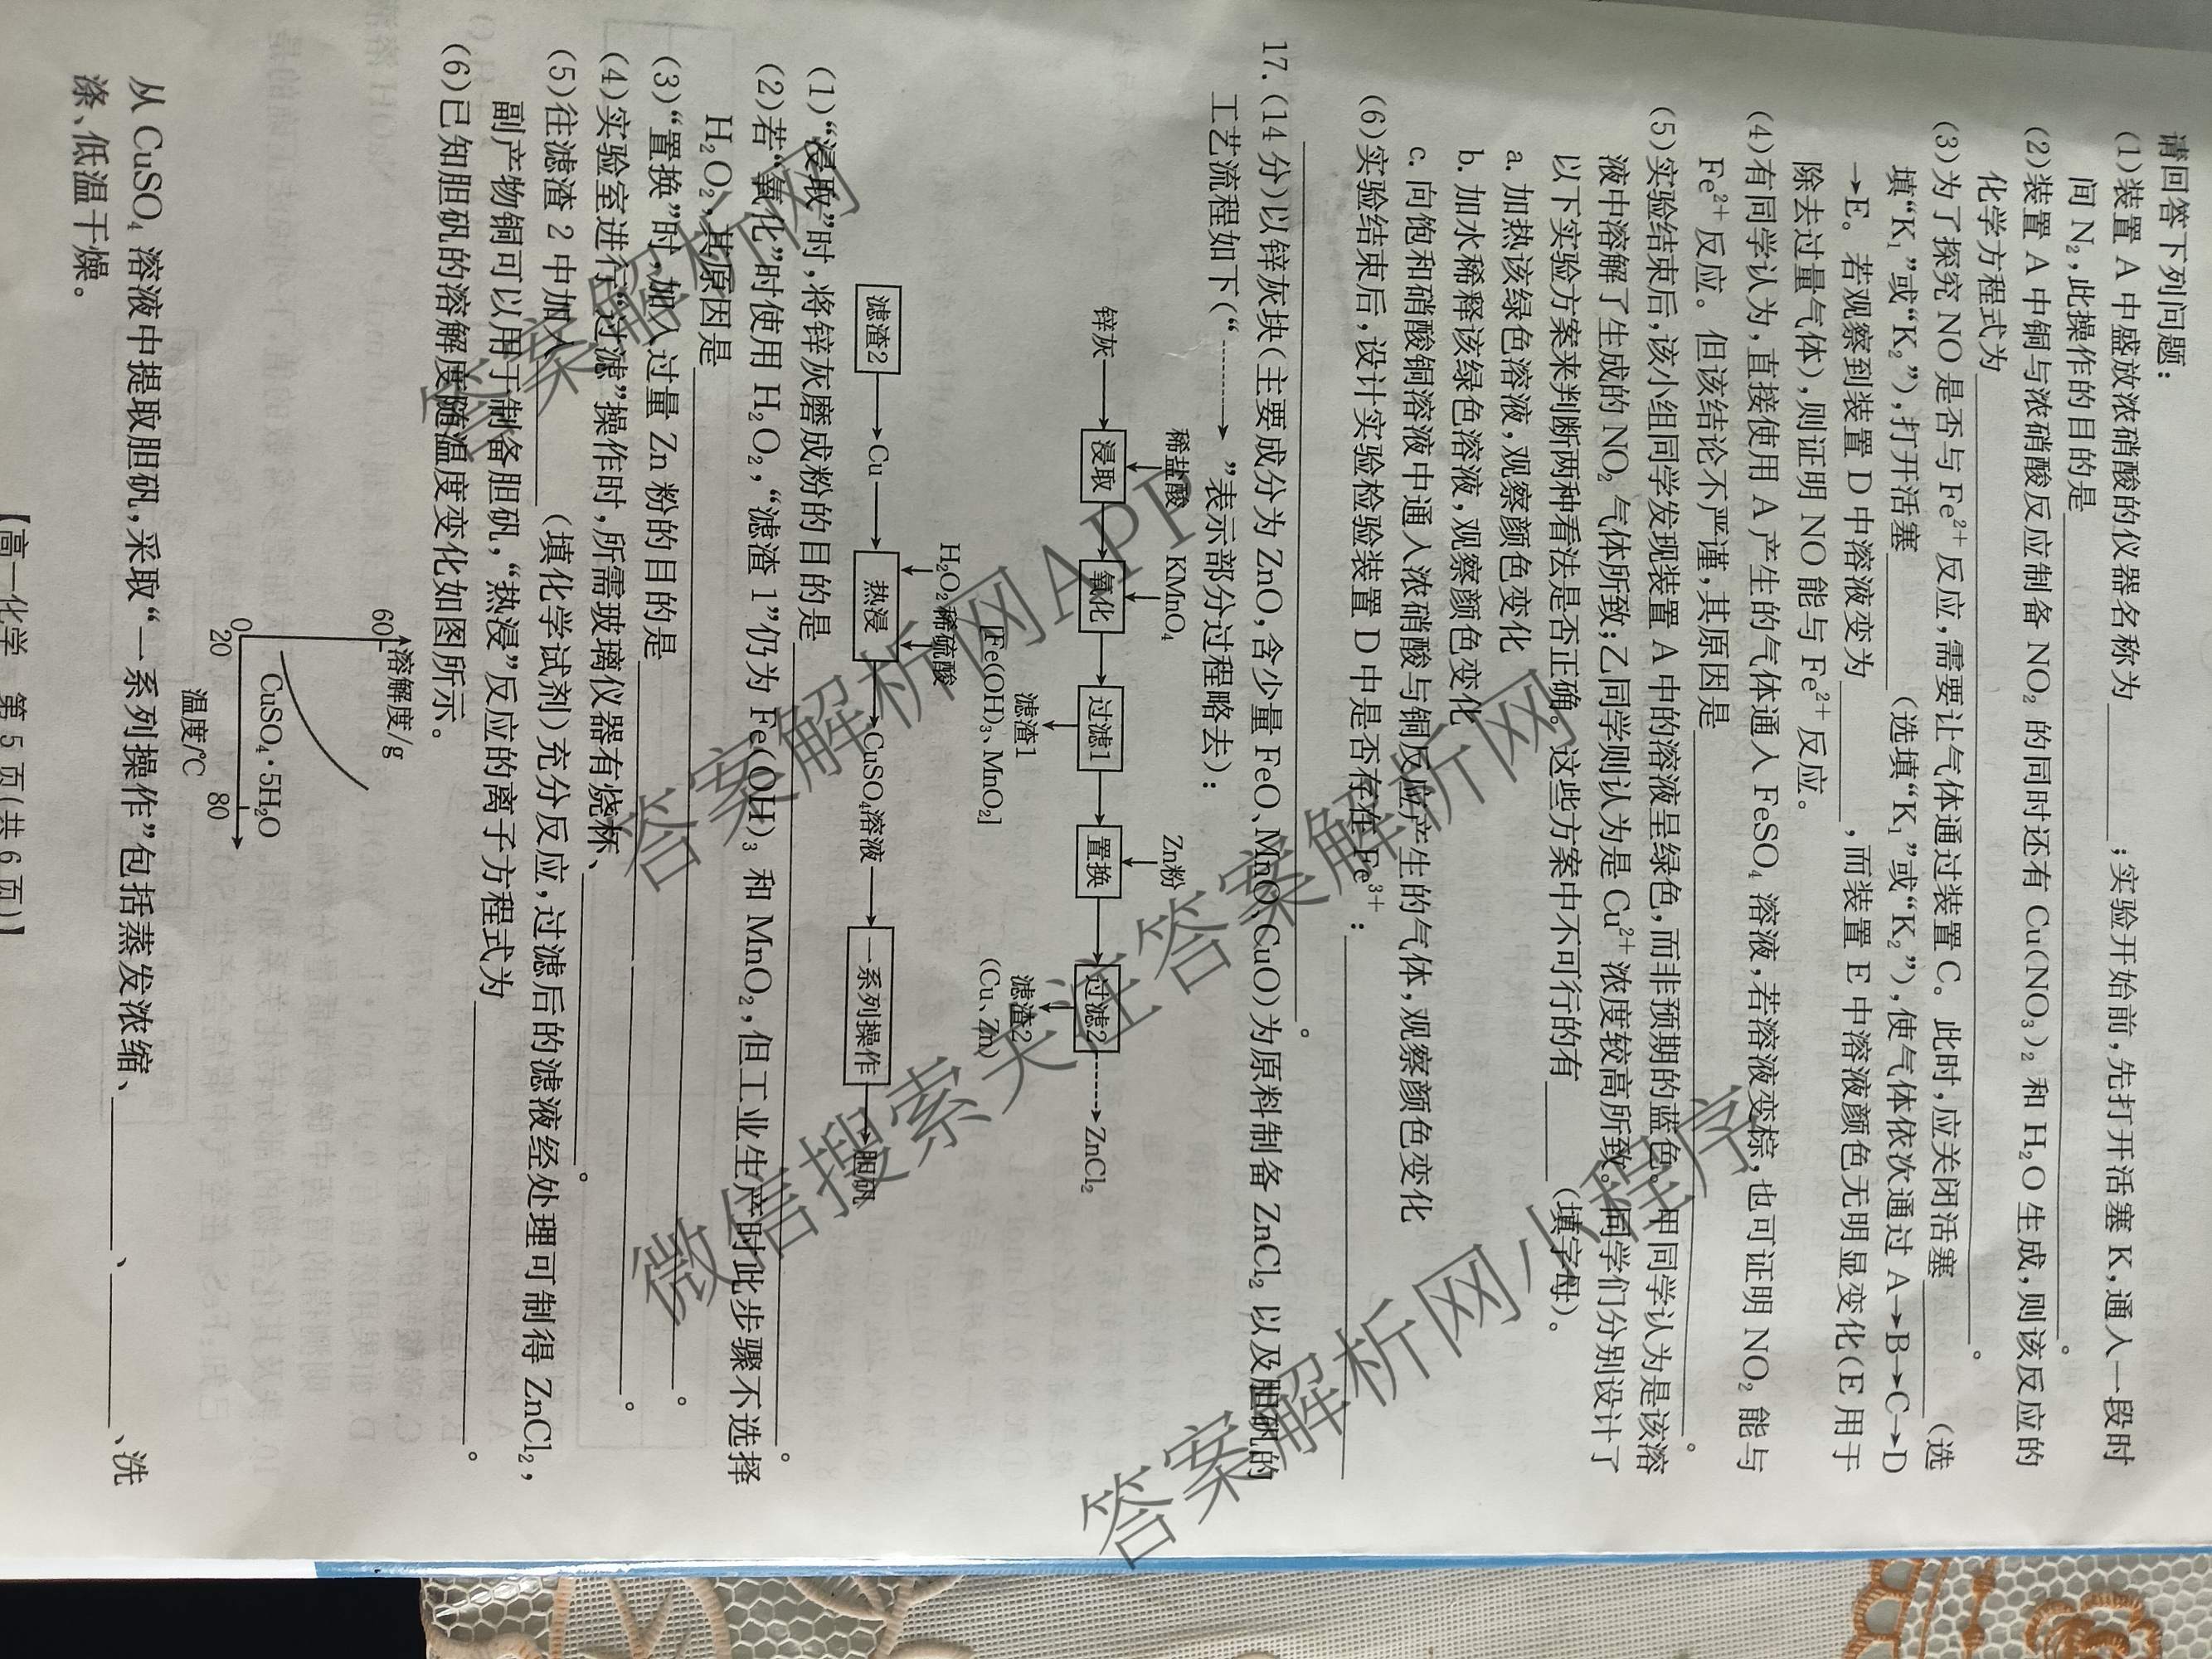 请回答下列问题：
(1)装置 A 中盛放浓硝酸的仪器名称为________；实验开始前，先打开活塞 K，通入一段时
间 N₂，此操作的目的是________。
(2)装置 A 中铜与浓硝酸反应制备 NO₂ 的同时还有 Cu(NO₃)₂ 和 H₂O 生成，则该反应的
化学方程式为________。
(3)为了探究 NO 是否与 Fe²⁺ 反应，需要让气体通过装置 C。此时，应关闭活塞________(选
填“K₁”或“K₂”)，打开活塞________(选填“K₁”或“K₂”)，使气体依次通过 A→B→C→D
→E。若观察到装置 D 中溶液变为________，而装置 E 中溶液颜色无明显变化(E 用于
除去过量气体)，则证明 NO 能与 Fe²⁺ 反应。
(4)有同学认为，直接使用 A 产生的气体通入 FeSO₄ 溶液，若溶液变棕，也可证明 NO₂ 能与
Fe²⁺ 反应。但该结论不严谨，其原因是________。
(5)实验结束后，该小组同学发现装置 A 中的溶液呈绿色，而非预期的蓝色。甲同学认为是该溶
液中溶解了生成的 NO₂ 气体所致；乙同学则认为是 Cu²⁺ 浓度较高所致。同学们分别设计了
以下实验方案来判断两种看法是否正确。这些方案中不可行的有________(填字母)。
a. 加热该绿色溶液，观察颜色变化
b. 加水稀释该绿色溶液，观察颜色变化
c. 向饱和硝酸铜溶液中通入浓硝酸与铜反应产生的气体，观察颜色变化
(6)实验结束后，设计实验检验装置 D 中是否存在 Fe³⁺：________
________。
17. (14 分)以锌灰块(主要成分为 ZnO，含少量 FeO、MnO、CuO)为原料制备 ZnCl₂ 以及胆矾的
工艺流程如下(“┈┈→”表示部分过程略去)：
稀盐酸 KMnO₄ Zn粉
锌灰→浸取→氧化→过滤1→置换→过滤2┈→ZnCl₂
滤渣1 滤渣2
[Fe(OH)₃、MnO₂] (Cu、Zn)
H₂O₂ 稀硫酸
滤渣2→Cu→热浸→CuSO₄溶液→一系列操作→胆矾
(1)“浸取”时，将锌灰磨成粉的目的是________。
(2)若“氧化”时使用 H₂O₂，“滤渣 1”仍为 Fe(OH)₃ 和 MnO₂，但工业生产时此步骤不选择
H₂O₂，其原因是________。
(3)“置换”时，加入过量 Zn 粉的目的是________。
(4)实验室进行“过滤”操作时，所需玻璃仪器有烧杯、________。
(5)往滤渣 2 中加入________(填化学试剂)充分反应，过滤后的滤液经处理可制得 ZnCl₂，
副产物铜可以用于制备胆矾，“热浸”反应的离子方程式为________。
(6)已知胆矾的溶解度随温度变化如图所示。
溶解度/g
60
CuSO₄·5H₂O
0
20 80
温度/℃
从 CuSO₄ 溶液中提取胆矾，采取“一系列操作”包括蒸发浓缩、________、________、洗
涤、低温干燥。
【高一化学 第 5 页(共 6 页)】
答案解析网
答案解析网APP
微信搜索关注答案解析网
答案解析网小程序